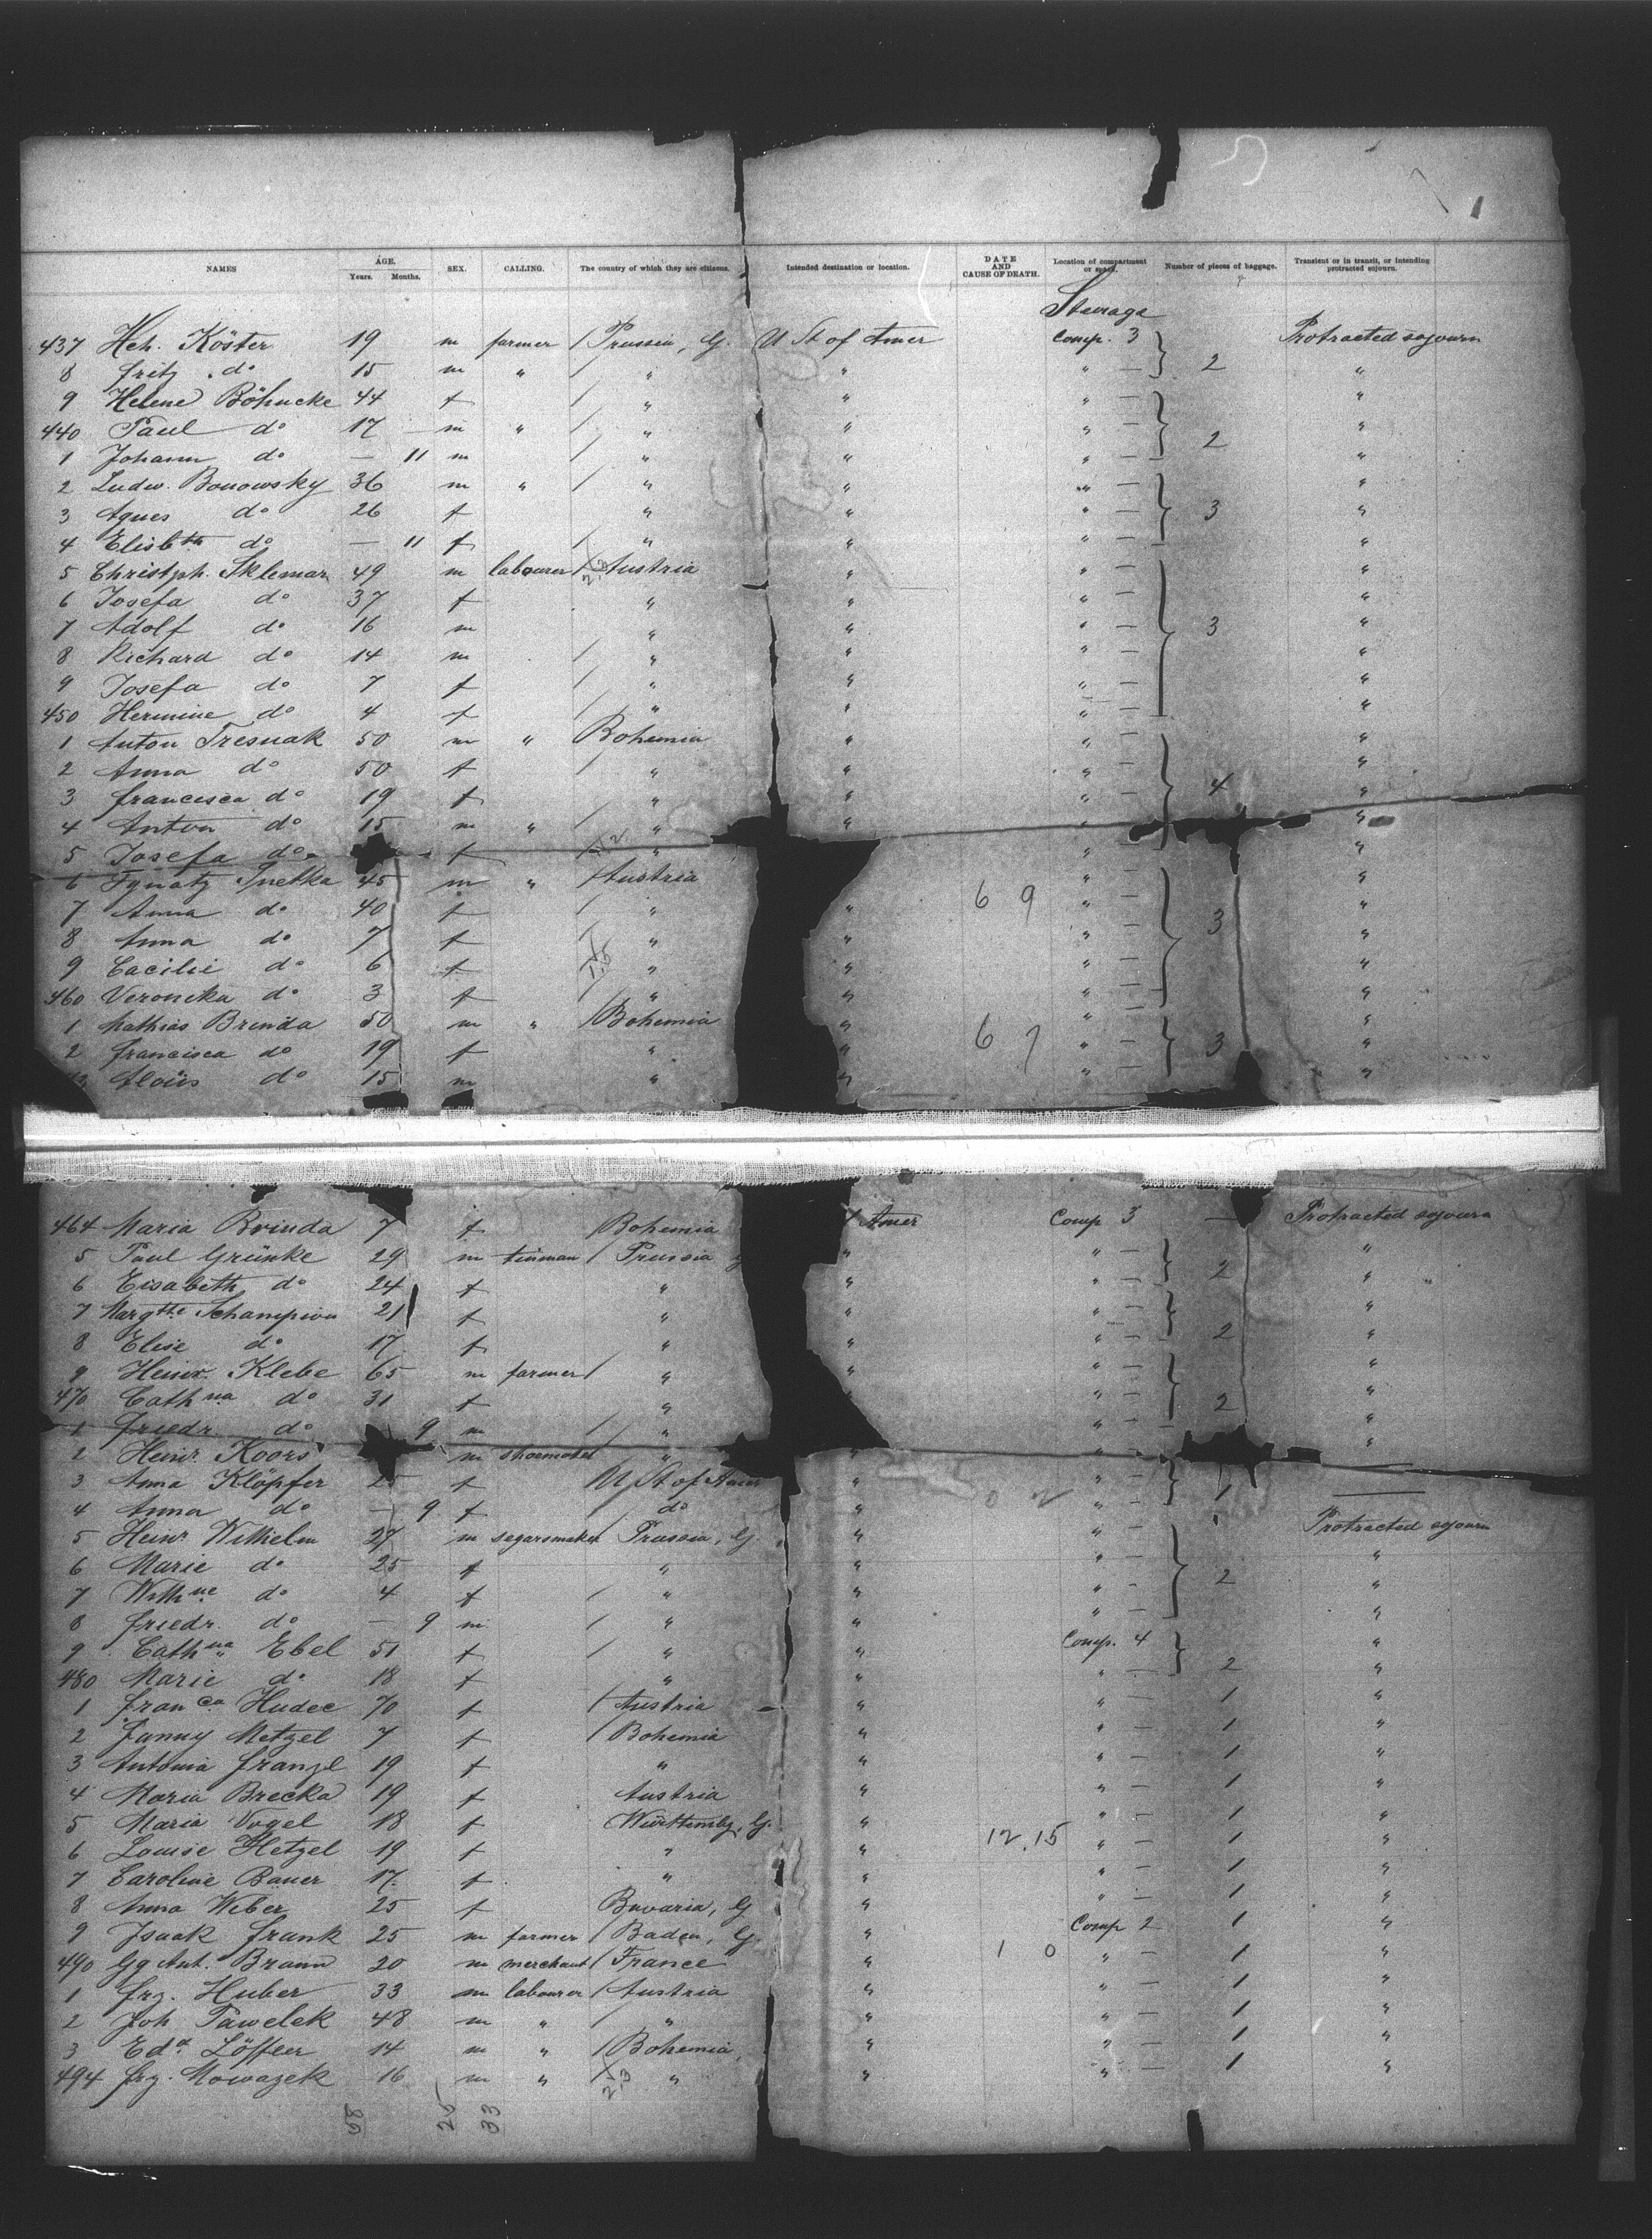 1
NAMES AGE. Years. Months. SEX. CALLING. The country of which they are citizens. Intended destination or location. DATE AND CAUSE OF DEATH. Location of compartment or space. Number of pieces of baggage. Transient or in transit, or intending protracted sojourn.
Steerage
437 Hch. Köster 19 m farmer / Prussia, G. U St of Amer Comp. 3 Protracted sojourn
8 Fritz do 15 m " / " " " — 2 "
9 Helene Böhncke 44 f / " " " — "
440 Paul do 17 — m " / " " " — "
1 Johann do — 11 m / " " " — 2 "
2 Ludw. Bonowsky 36 m " / " " " — "
3 Agnes do 26 f " " " — 3 "
4 Elisbth do — 11 f / " " " — "
5 Christph. Sklemar 49 m labourer / Austria " " — "
6 Josefa do 37 f " " " — "
7 Adolf do 16 m " " " — 3 "
8 Richard do 14 m / " " " — "
9 Josefa do 7 f / " " " — "
450 Hermine do 4 f / " " " — "
1 Anton Tresnak 50 m " Bohemia " " — "
2 Anna do 50 f / " " " — "
3 Francisca do 19 f " " " — 4 "
4 Anton do 15 m " / " " "
5 Josefa do f / " " — "
6 Ignatz Jnetka 45 m " / Austria " — "
7 Anna do 40 f / " " 6 9 " — 3 "
8 Anna do 7 f / " " " — "
9 Cacilie do 6 f " " " — "
460 Veronika do 3 f / " " " — "
1 Mathias Brinda 50 m " / Bohemia " " "
2 Francisca do 19 f " " 6 7 " — 3 "
3 Aloiis do 15 m " " "
464 Maria Brinda 7 f Bohemia Amer Comp 3 — Protracted sojourn
5 Paul Grünke 29 m tinman / Prussia " " — "
6 Eisabeth do 24 f " " " — 2 "
7 Margthe Schampion 21 f " " " — "
8 Elise do 17 f " " " — 2 "
9 Heinr. Klebe 65 m farmer / " " " — "
470 Cathna do 31 f " " " — 2 "
1 Friedr. do 9 m / " " — "
2 Heinr. Koors m shoemaker " " " —
3 Anna Klöpfer 25 f U St of Amer " " — 1 —
4 Anna do — 9 f / do " " —
5 Heinr Wilhelm 27 m segarsmaker Prussia, G. " " — Protracted sojourn
6 Marie do 25 f " " " — "
7 Wilhne do 4 f / " " " — 2 "
8 Friedr. do — 9 m / " " " — "
9 Cathna Ebel 51 f / " " Comp. 4 "
480 Marie do 18 f " " " — 2 "
1 Franca Hudec 70 f / Austria " " — 1 "
2 Fanny Metzel 7 f / Bohemia " " — 1 "
3 Antonia Franzl 19 f " " " — 1 "
4 Maria Brecka 19 f Austria " " — 1 "
5 Maria Vogel 18 f Württembg, G. " " — 1 "
6 Louise Hetzel 19 f " " 12.15 " — 1 "
7 Caroline Bauer 17 f " " " — 1 "
8 Anna Weber 25 f Bavaria, G " " — 1 "
9 Isaak Frank 25 m farmer / Baden, G. " Comp 2 1 "
490 Gg Ant. Braun 20 m merchant / France " 1 0 " — 1 "
1 Frz. Huber 33 m labourer / Austria " " — 1 "
2 Joh Pawelek 48 m " / " " " — 1 "
3 Edd. Löffler 14 m " / Bohemia, " " — 1 "
494 Frz. Nowazek 16 m " / " " " — 1 "
58 25 33